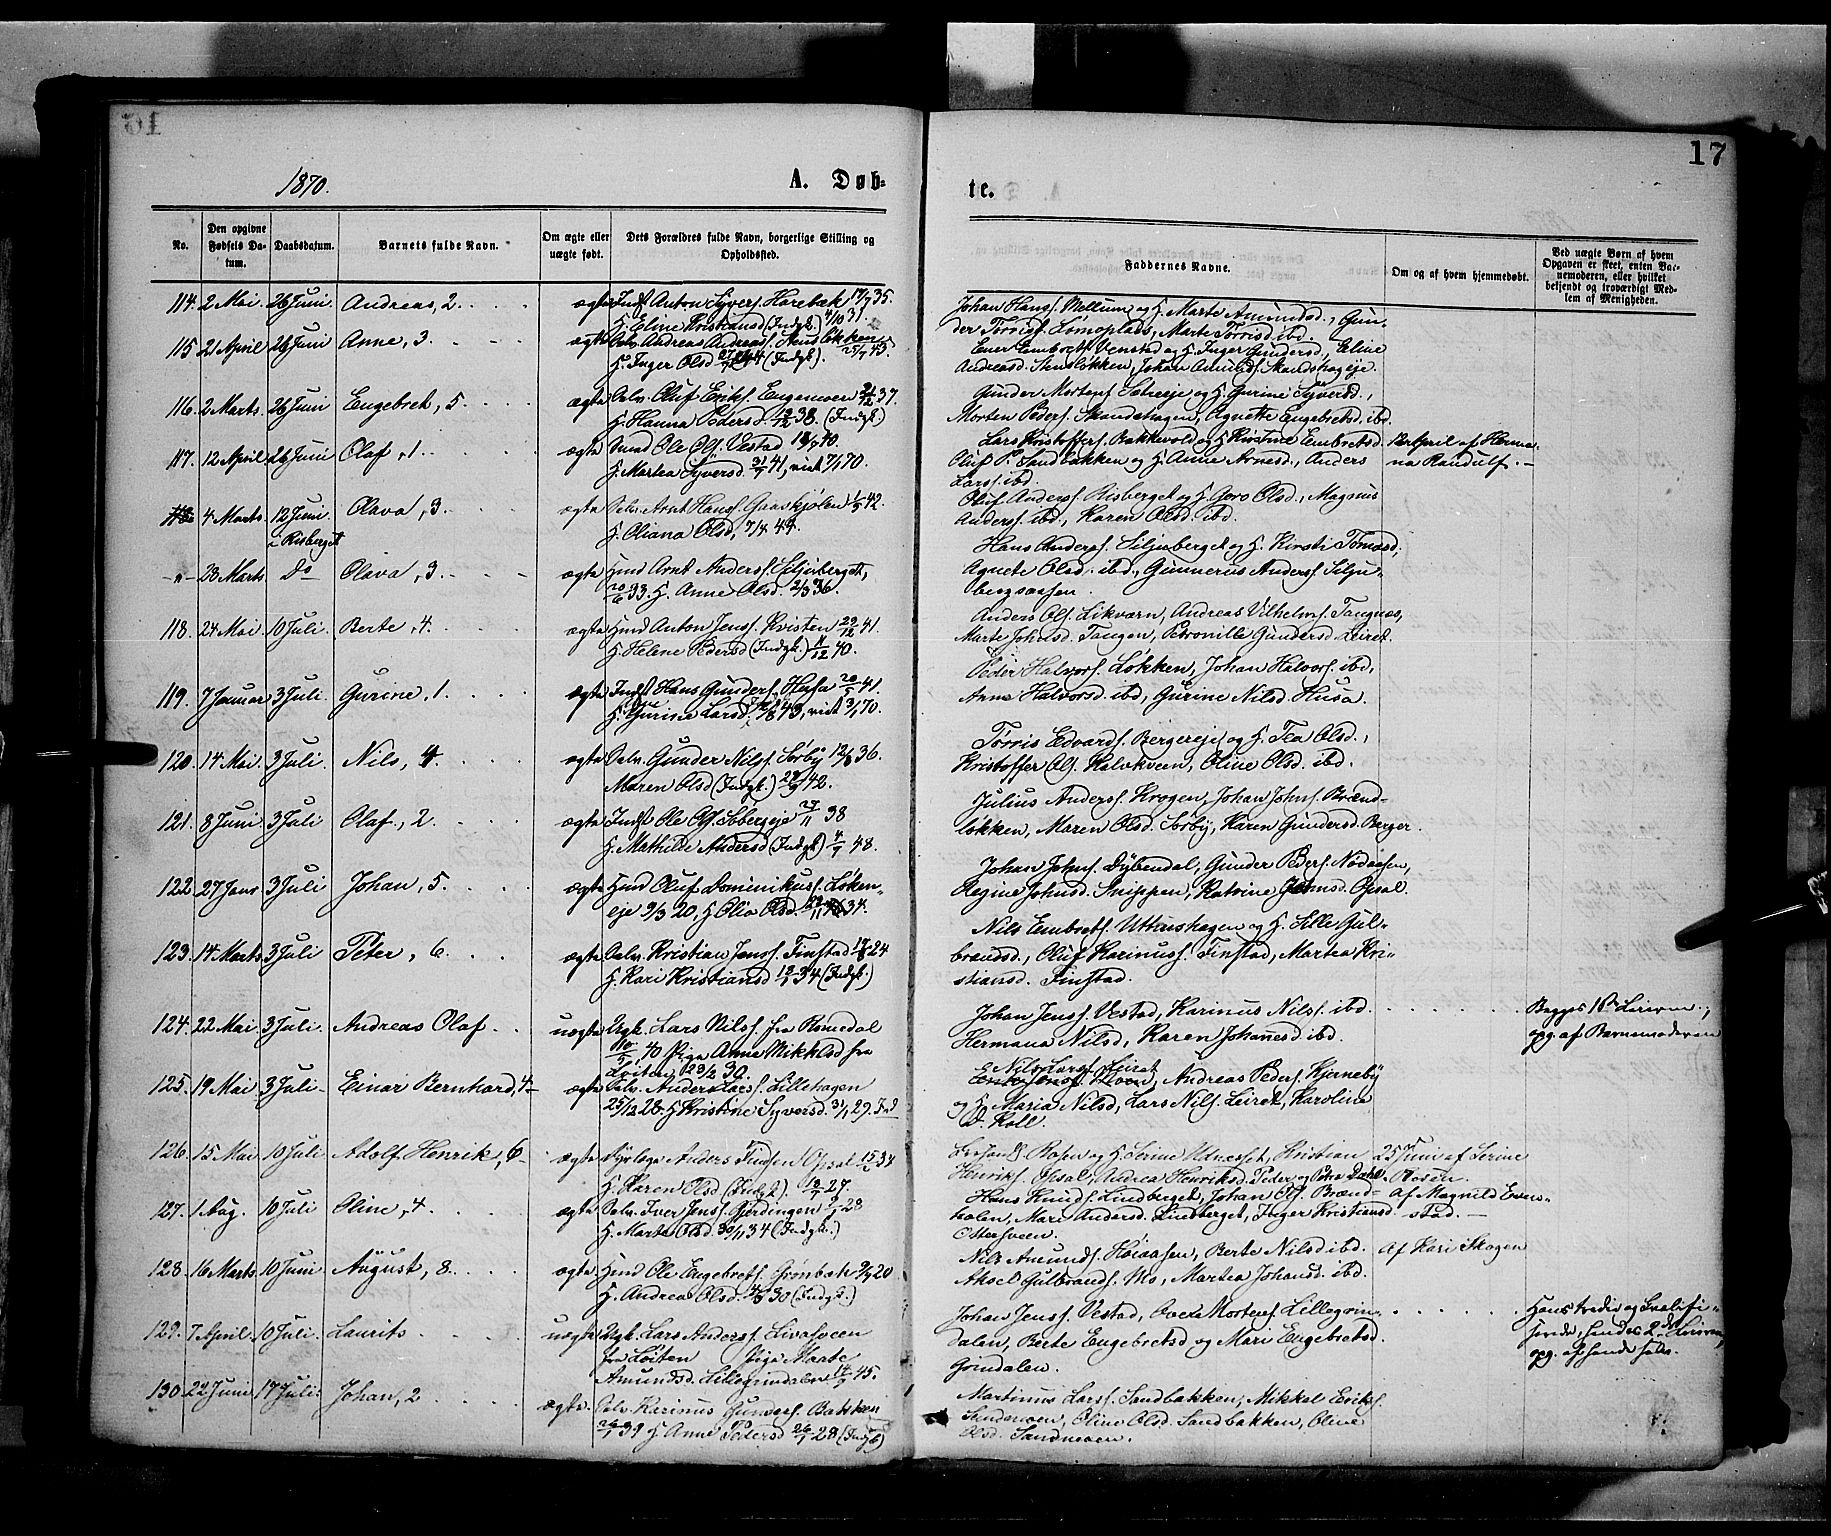 17
1870.
A. Døb-
te.
No.
Den opgivne Fødsels Da-tum.
Daabsdatum.
Barnets fulde Navn.
Om ægte eller uægte født.
Dets Forældres fulde Navn, borgerlige Stilling og Opholdssted.
Faddernes Navne.
Om og af hvem hjemmedøbt.
Ved uægte Børn af hvem Opgaven er skeet, enten Bar-nemoderen, eller hvilket bekjendt og troværdigt Med-lem af Menigheden.
114. 2 Mai 26 Juni Andreas, 2. ægte Indst Anton Syvers. Harebæk 17/7 35.
H. Eline Kristiansd (Indgk.) 4/10 31.
Johan Hans. Mellum og H. Marte Amundsd., Gun-
der Torris. Lømoplads, Marte Torrisd. ibd.
115 21 April 26 Juni Anne, 3. ægte Selv. Andreas Andreas. Stensløkken 25/7 43.
H. Inger Olsd 44 (Indgk.)
Ener Embrets. Venstad og H. Inger Gundersd., Eline
Andreasd. Stensløkken, Johan Amunds. Skandshageje.
116. 2 Marts. 26 Juni Engebret, 5. ægte Selv. Oluf Eriks. Eugenmoen 37.
H. Hanna Pedersd. 38. (Indgk.)
Gunder Mortens. og H. Gurine Syversd.,
Morten Peders. Skandshagen, Agnette Engebretsd. ibd.
117. 12 April 26 Juni Olaf, 1. ægte Ole Ols. Vestad 40.
H. Martea Syversd. 31/7 41, viet 7/1 70.
Lars Kristoffers. Bakkevold og H. Kirstine Embretsd.
Oluf P. Sandbakken og H. Anne Arnesd., Anders
Larss. ibd.
12 April af Herma-
na Randulf. —
4 Marts. 12 Juni i Risberget Olava, 3. ægte Selv. Arnt Hans. Gaaskjølen 1/5 42.
H. Oliana Olsd, 7/4 44.
Oluf Anders. Risberget og H. Goro Olsd., Magnus
Anders. ibd., Karen Olsd. ibd.
-"- 28 Marts Do Olava, 3. ægte Hmd Arnt Anders. Siljuberget,
20/6 33. H. Anne Olsd. 2/3 36.
Hans Anders. Siljuberget og H. Kirsti Tomasd.
Agnete Olsd. ibd., Gunnerus Anders. Silju-
bergsaasen.
118. 24 Mai 10 Juli Berte, 4. ægte Hmd Anton Jens. Kvisten 29/12 41.
H. Helene Pedersd (Indgk.) 11/12 40.
Anders Ols. Likværn, Andreas Vilhelms. Tangnæs,
Marte Johnsd. Tangen, Petronille Gundersd. Leiret.
119. 7 Januar 3 Juli Gurine, 1. ægte Indst Hans Gunders. Husa 20/5 41.
H. Gurine Larsd. 43, viet 3/1 70.
Peder Halvors. Løkken, Johan Halvors. ibd,
Anne Halvorsd. ibd, Gurine Nilsd. Husa.
120. 14 Mai 3 Juli Nils, 4. ægte Selv. Gunder Nils. Sørby 12/8 36.
Maren Olsd (Indgk.) 42.
Torris Edvards. Bergereje og H. Tea Olsd.,
Kristoffer Ols. Kalvkveen, Oline Olsd. ibd.
121. 8 Juni 3 Juli Olaf, 2. ægte Indst Ole Ols. 27/11 38
H. Mathilde Andersd (Indgk) 4/7 48.
Julius Anders. Krogen, Johan Johns. Brænd-
løkken, Maren Olsd. Sørby, Karen Gundersd. Berger.
122 27 Janr 3 Juli Johan, 5. ægte Hmd Oluf Dominikus. Løken-
eje 9/3 20, H. Olia Olsd. 34.
Johan Johns. Dybendal, Gunder Peders. Nødaasen,
Regine Johnsd. Snippen, Katrine Opsal.
123. 14 Marts 3 Juli Peter, 6. ægte Selv. Kristian Jens. Finstad 24
H. Kari Kristiansd 34 (Indgk.)
Nils Embrets. Uthushagen og H. Sille Gul-
brandsd., Oluf Karinus. Finstad, Martea Kri-
stiansd. Finstad.
124. 22 Mai 3 Juli. Andreas Olaf uægte Ugk. Lars Nils. fra Romedal
40 Pige Anne Mikkelsd fra
Løiten 23/2 30.
Johan Jens. Vestad, Karinus Nils. ibd.
Hermana Nilsd, Karen Johannesd ibd.
Begges 1ste Leierm.,
opg. af Barnemoderen
125. 19 Mai 3 Juli Einar Bernhard, 4 ægte Selv. Anders Lars. Lillehagen
25/12 28. H. Kristine Syversd. 3/1 29.
Nils Lars. Leiret, Andreas Peders. Kjerneby
og H. Maria Nilsd, Lars Nils. Leiret, Karoline
Koll.
126. 15 Mai 10 Juli Adolf Henrik, 6 ægte Anders Findsen Opsal 34
H. Karen Olsd (Indgk.) 27.
Rosen og H. Serine Udnæsset, Kristian
Henriks. Opsal, Andrea Henriksd.
25 Juni af Serine
Rosen.
127. 1 Aug. 10 Juli Oline, 4 ægte Selv. Iver Jens. Gjerdingen 28
H. Marte Olsd. 30/11 34 (Indgk.)
Hans Knuds. Lindberget, Johan Ols. Brænd-
holen, Mari Andersd. Lindberget, Inger Kristiansd.
af Magnild Even-
stad. —
128. 16 Marts 10 Juni August, 8. ægte Hmd Ole Engebrets. Grønbæk 20
H. Andrea Olsd. 30 (Indgk.)
Nils Amunds. Høiaasen, Berte Nilsd ibd.
Aksel Gulbrands. Mo, Martea Johansd. ibd.
af Kari Skogen
129. 7 April 10 Juli. Laurits uægte Ugk. Lars Anders. Livasveen
fra Løiten Pige Marte
Amundsd. Lillegrindalen 45.
Johan Jens. Vestad, Mortens. Lillegrin-
dalen, Berte Engebretsd og Mari Engebretsd.
Grindalen.
Hans tredie og kvalifi-
serede, hendes 2det Leierm.,
opg. af hende selv.
130. 22 Juni 17 Juli Johan, 2 ægte. Selv. Karinus Gunders. Bakken
39 H. Anne Pedersd 28 (Indgk)
Martinus Lars. Sandbakken, Mikkel Eriks.
Sandmoen, Oline Olsd. Sandbakken, Oline
Olsd. Sandmoen.